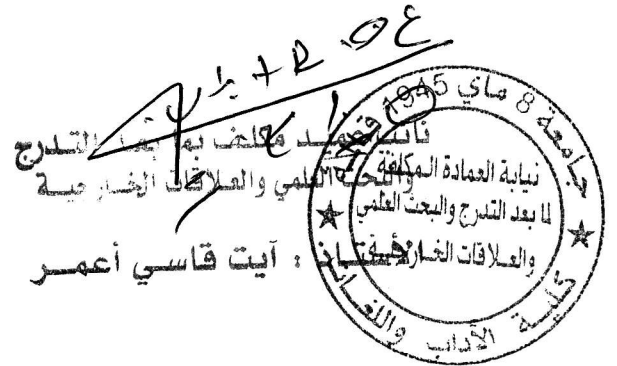 نائب عميد مكلف بما بعد التدرج
والبحث العلمي والعلاقات الخارجية
الأستاذ : آيت قاسي أعمر
جامعة 8 ماي 1945
نيابة العمادة المكلفة
لما بعد التدرج والبحث العلمي
والعلاقات الخارجية
كلية الآداب واللغات